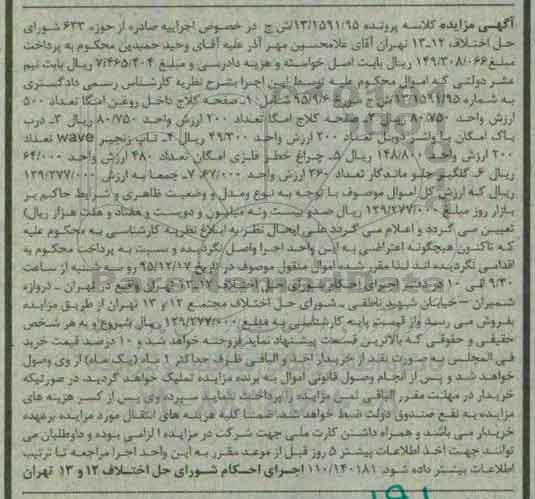 آگهی مزایده کلاسه پرونده ۱۳/۱۵۹۱/۹۵/ش ج در خصوص اجراییه صادره از حوزه ۶۳۳ شورای
حل اختلاف ۱۲_۱۳ تهران آقای غلامحسین مهر آذر علیه آقای وحید حمیدین محکوم به پرداخت
مبلغ ۱۴۹/۳۰۸/۰۶۶ ریال بابت اصل خواسته و هزینه دادرسی و مبلغ ۷/۴۶۵/۴۰۴ ریال بابت نیم
عشر دولتی که اموال محکوم علیه توسط این اجرا بشرح نظریه کارشناس رسمی دادگستری
به شماره ۱۳/۱۵۹۱/۹۵/ش ج مورخ ۹۵/۹/۶ شامل: ۱_ صفحه کلاج داخل روغن امگا تعداد ۵۰۰
ارزش واحد ۸۰/۷۵۰ ریال ۲_ صفحه کلاج امگا تعداد ۲۰۰ ارزش واحد ۸۰/۷۵۰ ریال ۳_ درب
باک امکان با واشر دوبل تعداد ۲۰۰ ارزش واحد ۴۹/۳۰۰ ریال ۴_ تاپ زنجیر wave تعداد
۲۰۰ ارزش واحد ۱۴۸/۸۰۰ ریال ۵_ چراغ خطر فلزی امکان تعداد ۴۸۰ ارزش واحد ۶۴/۰۰۰
ریال ۶_ گلگیر جلو ماندگار تعداد ۳۶۰ ارزش واحد ۶۷/۰۰۰ ۷_ جمعا به ارزش ۱۲۹/۲۷۷/۰۰۰
ریال که ارزش کل اموال موصوف با توجه به نوع ومدل و وضعیت ظاهری و شرایط حاکم بر
بازار روز مبلغ ۱۲۹/۲۷۷/۰۰۰ ریال صدو بیست ونه میلیون و دویست و هفتاد و هفت هزار ریال)
تعیین می گردد و اعلام می گردد علی ایحال نظر به ابلاغ نظریه کارشناسی به محکوم علیه
که تاکنون هیچگونه اعتراضی به این واحد اجرا واصل نگردیده و نسبت به پرداخت محکوم به
اقدامی نگردیده اند لذا مقرر شده اموال منقول موصوف در تاریخ ۹۵/۱۲/۱۷ رو سه شنبه از ساعت
۹/۳۰ الی ۱۰ در دفتر اجرای احکام شورای حل اختلاف ۱۲_۱۳ تهران واقع در تهران _ دروازه
شمیران _خیابان شهید ناطقی _ شورای حل اختلاف مجتمع ۱۲ و ۱۳ تهران از طریق مزایده
بفروش می رسد واز قیمت پایه کارشناسی به مبلغ ۱۲۹/۲۷۷/۰۰۰ ریال شروع و به هر شخص
حقیقی و حقوقی که بالاترین قسمت پیشنهاد نماید فروخته خواهد شد و ۱۰ درصد قیمت خرید
فی المجلس به صورت نقد از خریدار اخذ و الباقی ظرف حداکثر ۱ ماه (یک ماه) از وی وصول
خواهد شد و پس از انجام وصول قانونی اموال به برنده مزایده تملیک خواهد گردید. در صورتیکه
خریدار در مهلت مقرر الباقی ثمن مزایده را پرداخت ننماید سپرده وی پس از کسر هزینه های
مزایده به نفع صندوق دولت ضبط خواهد شد. ضمنا کلیه هزینه های انتقال مورد مزایده برعهده
خریدار می باشد و همراه داشتن کارت ملی جهت شرکت در مزایده الزامی بوده و داوطلبان می
توانند جهت اخذ اطلاعات بیشتر ۵ روز قبل از موعد مقرر به این واحد اجرا مراجعه تا ترتیب
اطلاعات بیشتر داده شود. ۱۱۰/۱۴۰۱۸۱ اجرای احکام شورای حل اختلاف ۱۲ و ۱۳ تهران